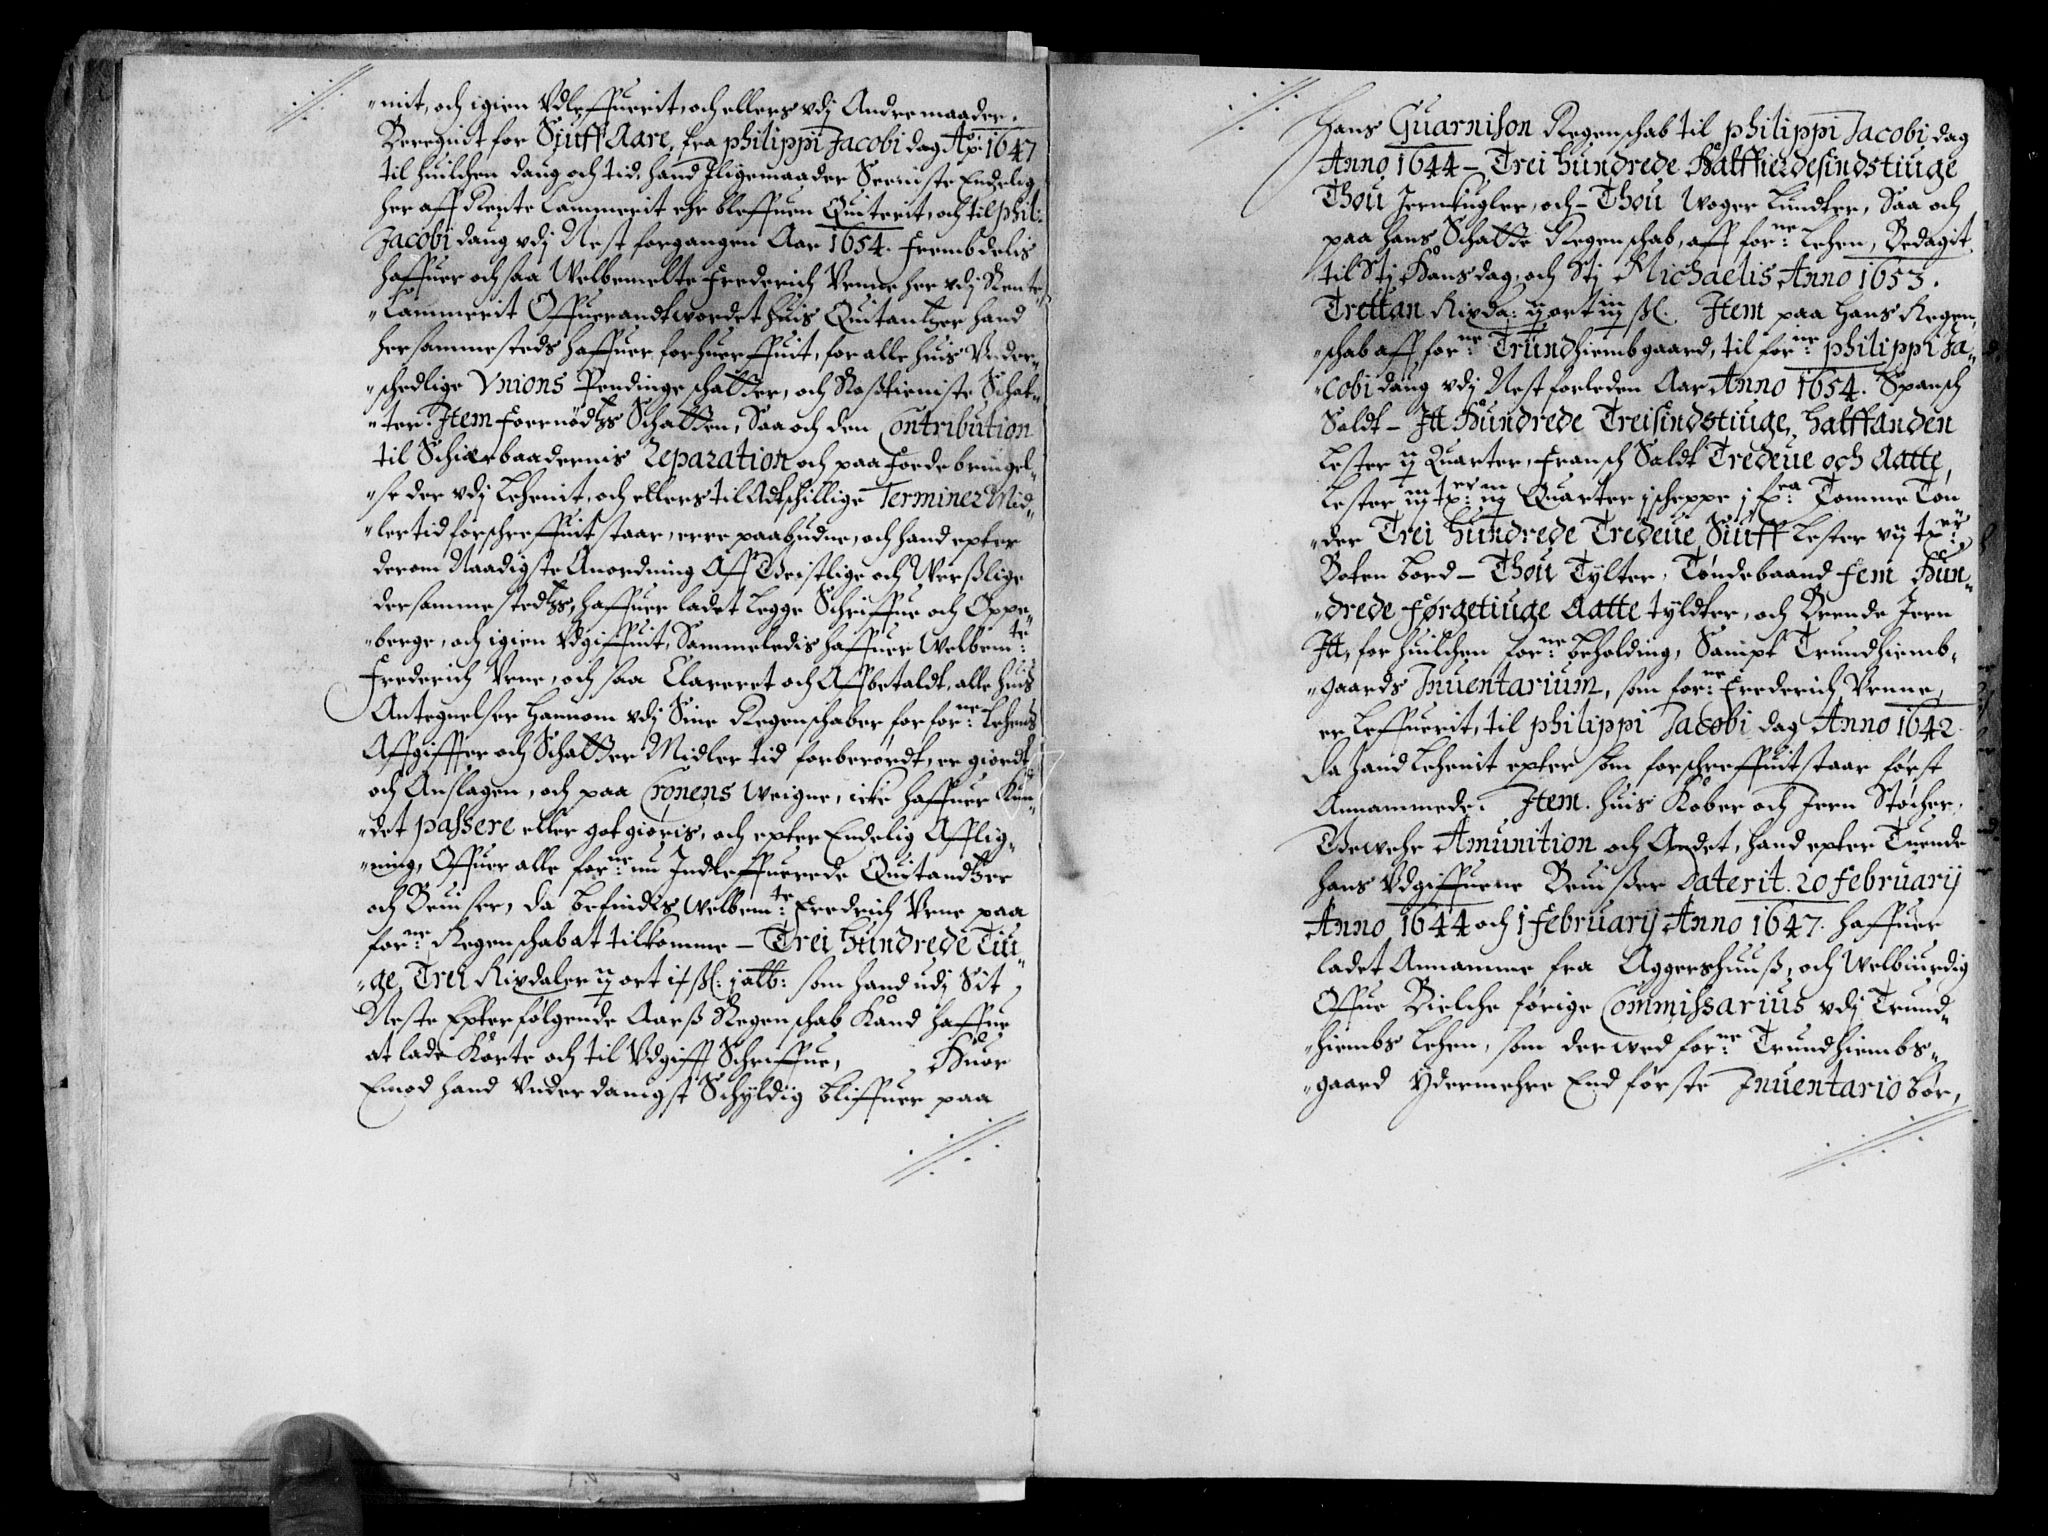 -nit, och igien Vdleffuerit, och ellers vdj Andre maader.
Beregnidt for Siuff Aare, fra Philippi Jacobi dag Ao: 1647
til huilchen daug och tid, hand Jligemaader Seeniste Endelig
her aff Rente Cammerit ehr bleffuen Quiterit, och til phil:
Jacobi daug vdj Nest forgangen Aar 1654. Frembdelis
haffuer och saa Welbemelte Frederich Vrne her vdj Rente
-Cammerit Offuerandtwordet huis Quitantzer hand
her sammesteds haffuer forhuerffuit, for alle huis Vnder-
-schedlige Vnions Pendinge schatter, och Roßtieniste Schat-
-ter. Item Fornødtzs Schatten, Saa och den Contribution
til Schierbaadernis Reparation och paa Forde bringel-
-se der vdj Lehenit, och ellers til Adschillige Terminer Mid-
-lertid forschreffuit staar, erre paabudne, och hand epter
derom Naadigste Anordning Aff Geistlige och Werßlige
der sammestedtzs, haffuer ladet legge Schriffue och Oppe-
-berge, och igien Vdgiffuit, Sammeledis haffuer Welbemte:
Frederich Vrne, och saa Clareret och Affbetaldt, alle huis
Antegnelser hannom vdj Sine Regenschaber for forne: Lehens
Affgiffter och Schatter Midler tid forberørdt, er giordt
och Anslagen, och paa Cronens weigne, icke haffuer Kun-
-det passere eller got giøris, och epter Endelig Afflig-
-ning, Offuer alle forne: nu Indleffuerede Quitandtzer
och Beuiser, da befindis Welbemte: Fredrich Vrne paa
forne: Regenschab at tilkomme - Trei hundrede Tiu-
-ge, Trei Rixdaler ij ort iƒ ßl: j alb: som hand udj Sit
Neste Epterfølgende Aarß Regenschab Kand haffue
at lade Korte och til Vdgifft Schriffue, Huor
Emod hand Vnderdanigst Schyldig bliffuer paa
Hans Guarnison Regenschab til philippi Jacobi dag
Anno 1644 - Trei hundrede Halffierdesindstiuge
Thou Jernkugler, och - Thou Woger Lundter, Saa och
paa hans Schatte Regenschab, aff forne: Lehen, Bedagit
til Stj Hansdag, och Stj Michaelis Anno 1653.
Trettan Rixda: ij ort iij ßl. Item paa hans Regen-
-schab aff forne: Trundhiembgaard, til forne: philippi Ja-
-cobi daug vdj Nest forleden Aar Anno 1654. Spansch
Saldt - Itt Hundrede Treisindstiuge, halffanden
Lester ij Quarter, Fransch Saldt Tredeue och Aatte,
Lester iij tr: iij Quarter j scheppe j fra Tomme Tøn
-der Trei hundrede Tredeue Siuff Lester vij tr:
Boten bord - Thou Tylter, Tøndebaand Fem Hun-
-drede Førgetiuge Aatte tyldter, och Brende Jern
Itt, for huilchen forne: beholding, Sampt Trundhiemb-
-gaards Inuentarium, som forne: Frederich Vrne,
er Leffuerit, til philippi Jacobi dag Anno 1642.
da hand Lehenit epter som forschreffuit staar først
Annammede. Item. huis Kober och Jern Støcher,
Gewehr Amunition och Andet, hand epter Tuende
hans Vdgiffuene Beuißer Daterit. 20 February
Anno 1644 och 1 February Anno 1647. haffuer
ladet Annamme fra Aggershuuß, och Welbiurdig
Offue Bielche førige Commissarius vdj Trund-
-hiembs Lehen, som der wed forne: Trundhiembs-
-gaard Ydermehre End første Inuentario bør,